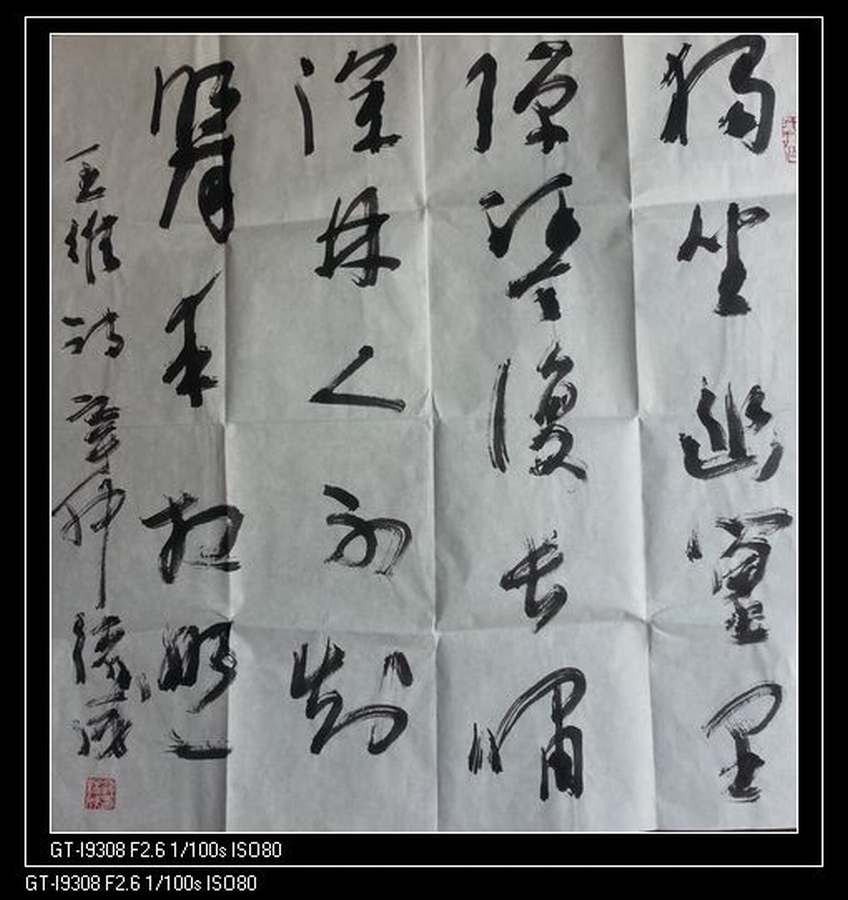 獨坐幽篁里
彈琴復長嘯
深林人不知
明月来相照
王維詩
GT-I9308 F2.6 1/100s ISO80
GT-I9308 F2.6 1/100s ISO80